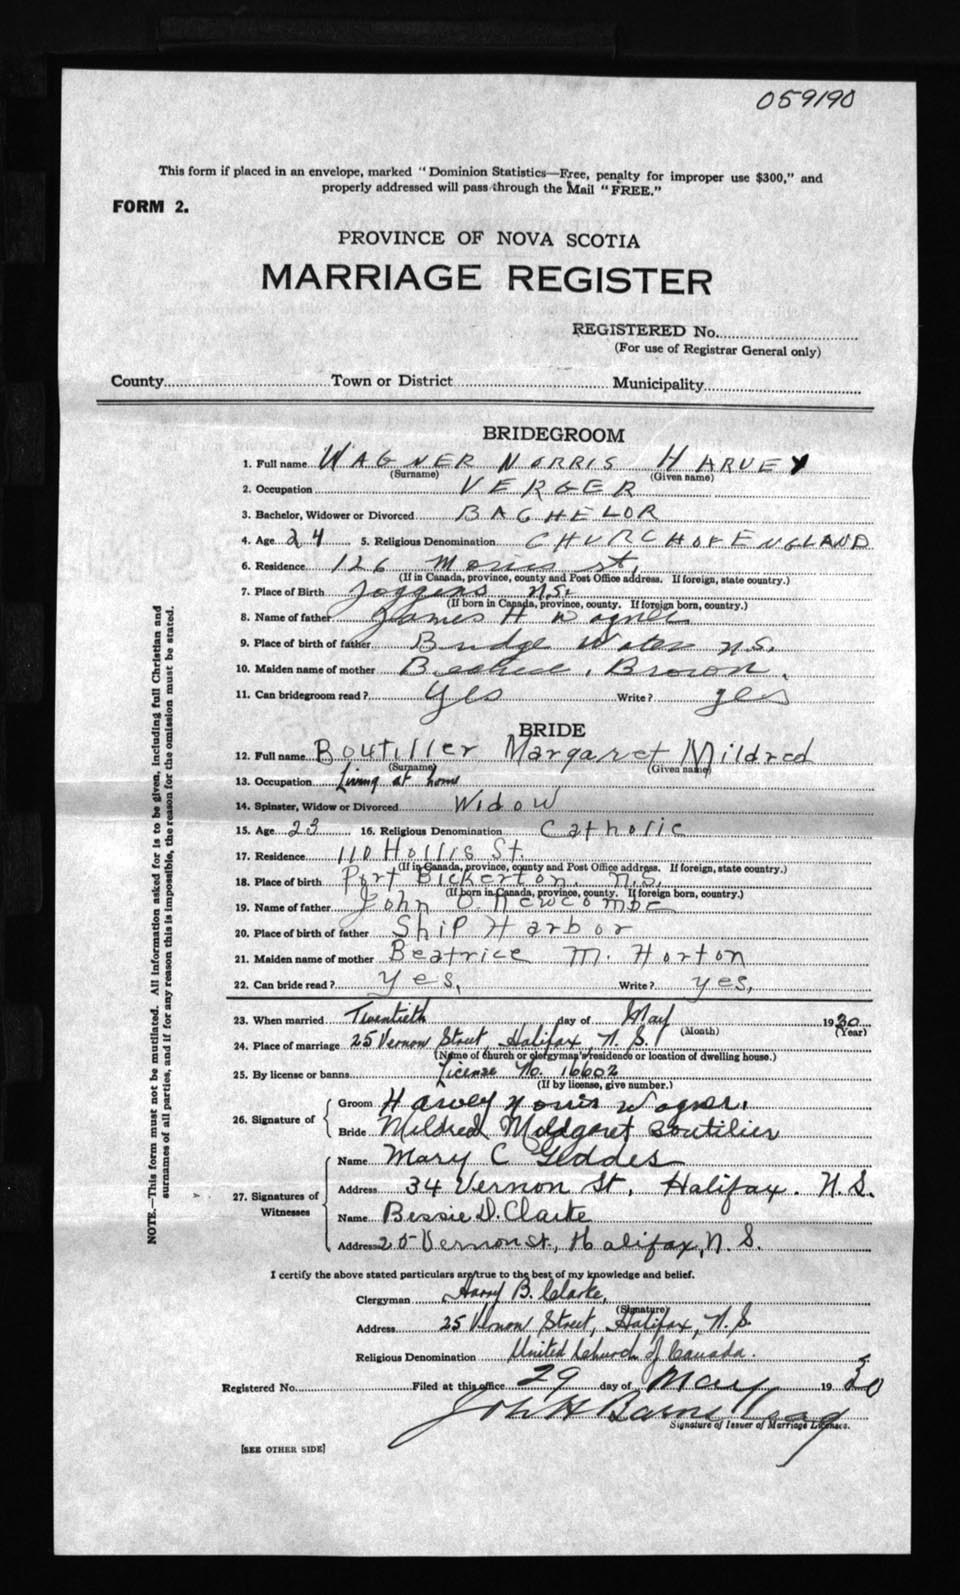 059190
This form if placed in an envelope, marked "Dominion Statistics—Free, penalty for improper use $300," and
properly addressed will pass through the Mail "FREE."
FORM 2.
PROVINCE OF NOVA SCOTIA
MARRIAGE REGISTER
REGISTERED No.
(For use of Registrar General only)
County Town or District Municipality
BRIDEGROOM
1. Full name WAGNER NORRIS HARVEY
(Surname) (Given name)
2. Occupation VERGER
3. Bachelor, Widower or Divorced BACHELOR
4. Age 24 5. Religious Denomination CHURCH OF ENGLAND
6. Residence 126 Morris st.
(If in Canada, province, county and Post Office address. If foreign, state country.)
7. Place of Birth Joggens N.S.
(If born in Canada, province, county. If foreign born, country.)
8. Name of father James H Wagner
9. Place of birth of father Bridge Water N.S.
10. Maiden name of mother Brown.
11. Can bridegroom read? Yes Write? yes
BRIDE
12. Full name Boutilier Margaret Mildred
(Surname) (Given name)
13. Occupation Living at home
14. Spinster, Widow or Divorced Widow
15. Age 23 16. Religious Denomination Catholic
17. Residence 110 Hollis St.
(If in Canada, province, county and Post Office address. If foreign, state country.)
18. Place of birth Port Bickerton. N.S.
(If born in Canada, province, county. If foreign born, country.)
19. Name of father John O. Newcombe
20. Place of birth of father Ship Harbor
21. Maiden name of mother Beatrice M. Horton
22. Can bride read? yes, Write? yes,
23. When married Twentieth day of May 1930
(Month) (Year)
24. Place of marriage 25 Vernon Street, Halifax, N.S.
(Name of church or clergyman's residence or location of dwelling house.)
25. By license or banns License No. 16602
(If by license, give number.)
26. Signature of Groom Harvey Norris Wagner.
Bride Mildred Mildgaret Boutilier
27. Signatures of Witnesses Name Mary C Geddes
Address 34 Vernon St, Halifax. N.S.
Name Bessie D. Clarke
Address 25 Vernon St., Halifax, N.S.
I certify the above stated particulars are true to the best of my knowledge and belief.
Clergyman Harry B. Clarke,
(Signature)
Address 25 Vernon Street, Halifax, N.S.
Religious Denomination United Church of Canada.
Registered No. Filed at this office 29 day of May 1930
John H Barnstead
Signature of Issuer of Marriage Licenses.
[SEE OTHER SIDE]
NOTE.—This form must not be mutilated. All information asked for is to be given, including full Christian and
surnames of all parties, and if for any reason this is impossible, the reason for the omission must be stated.